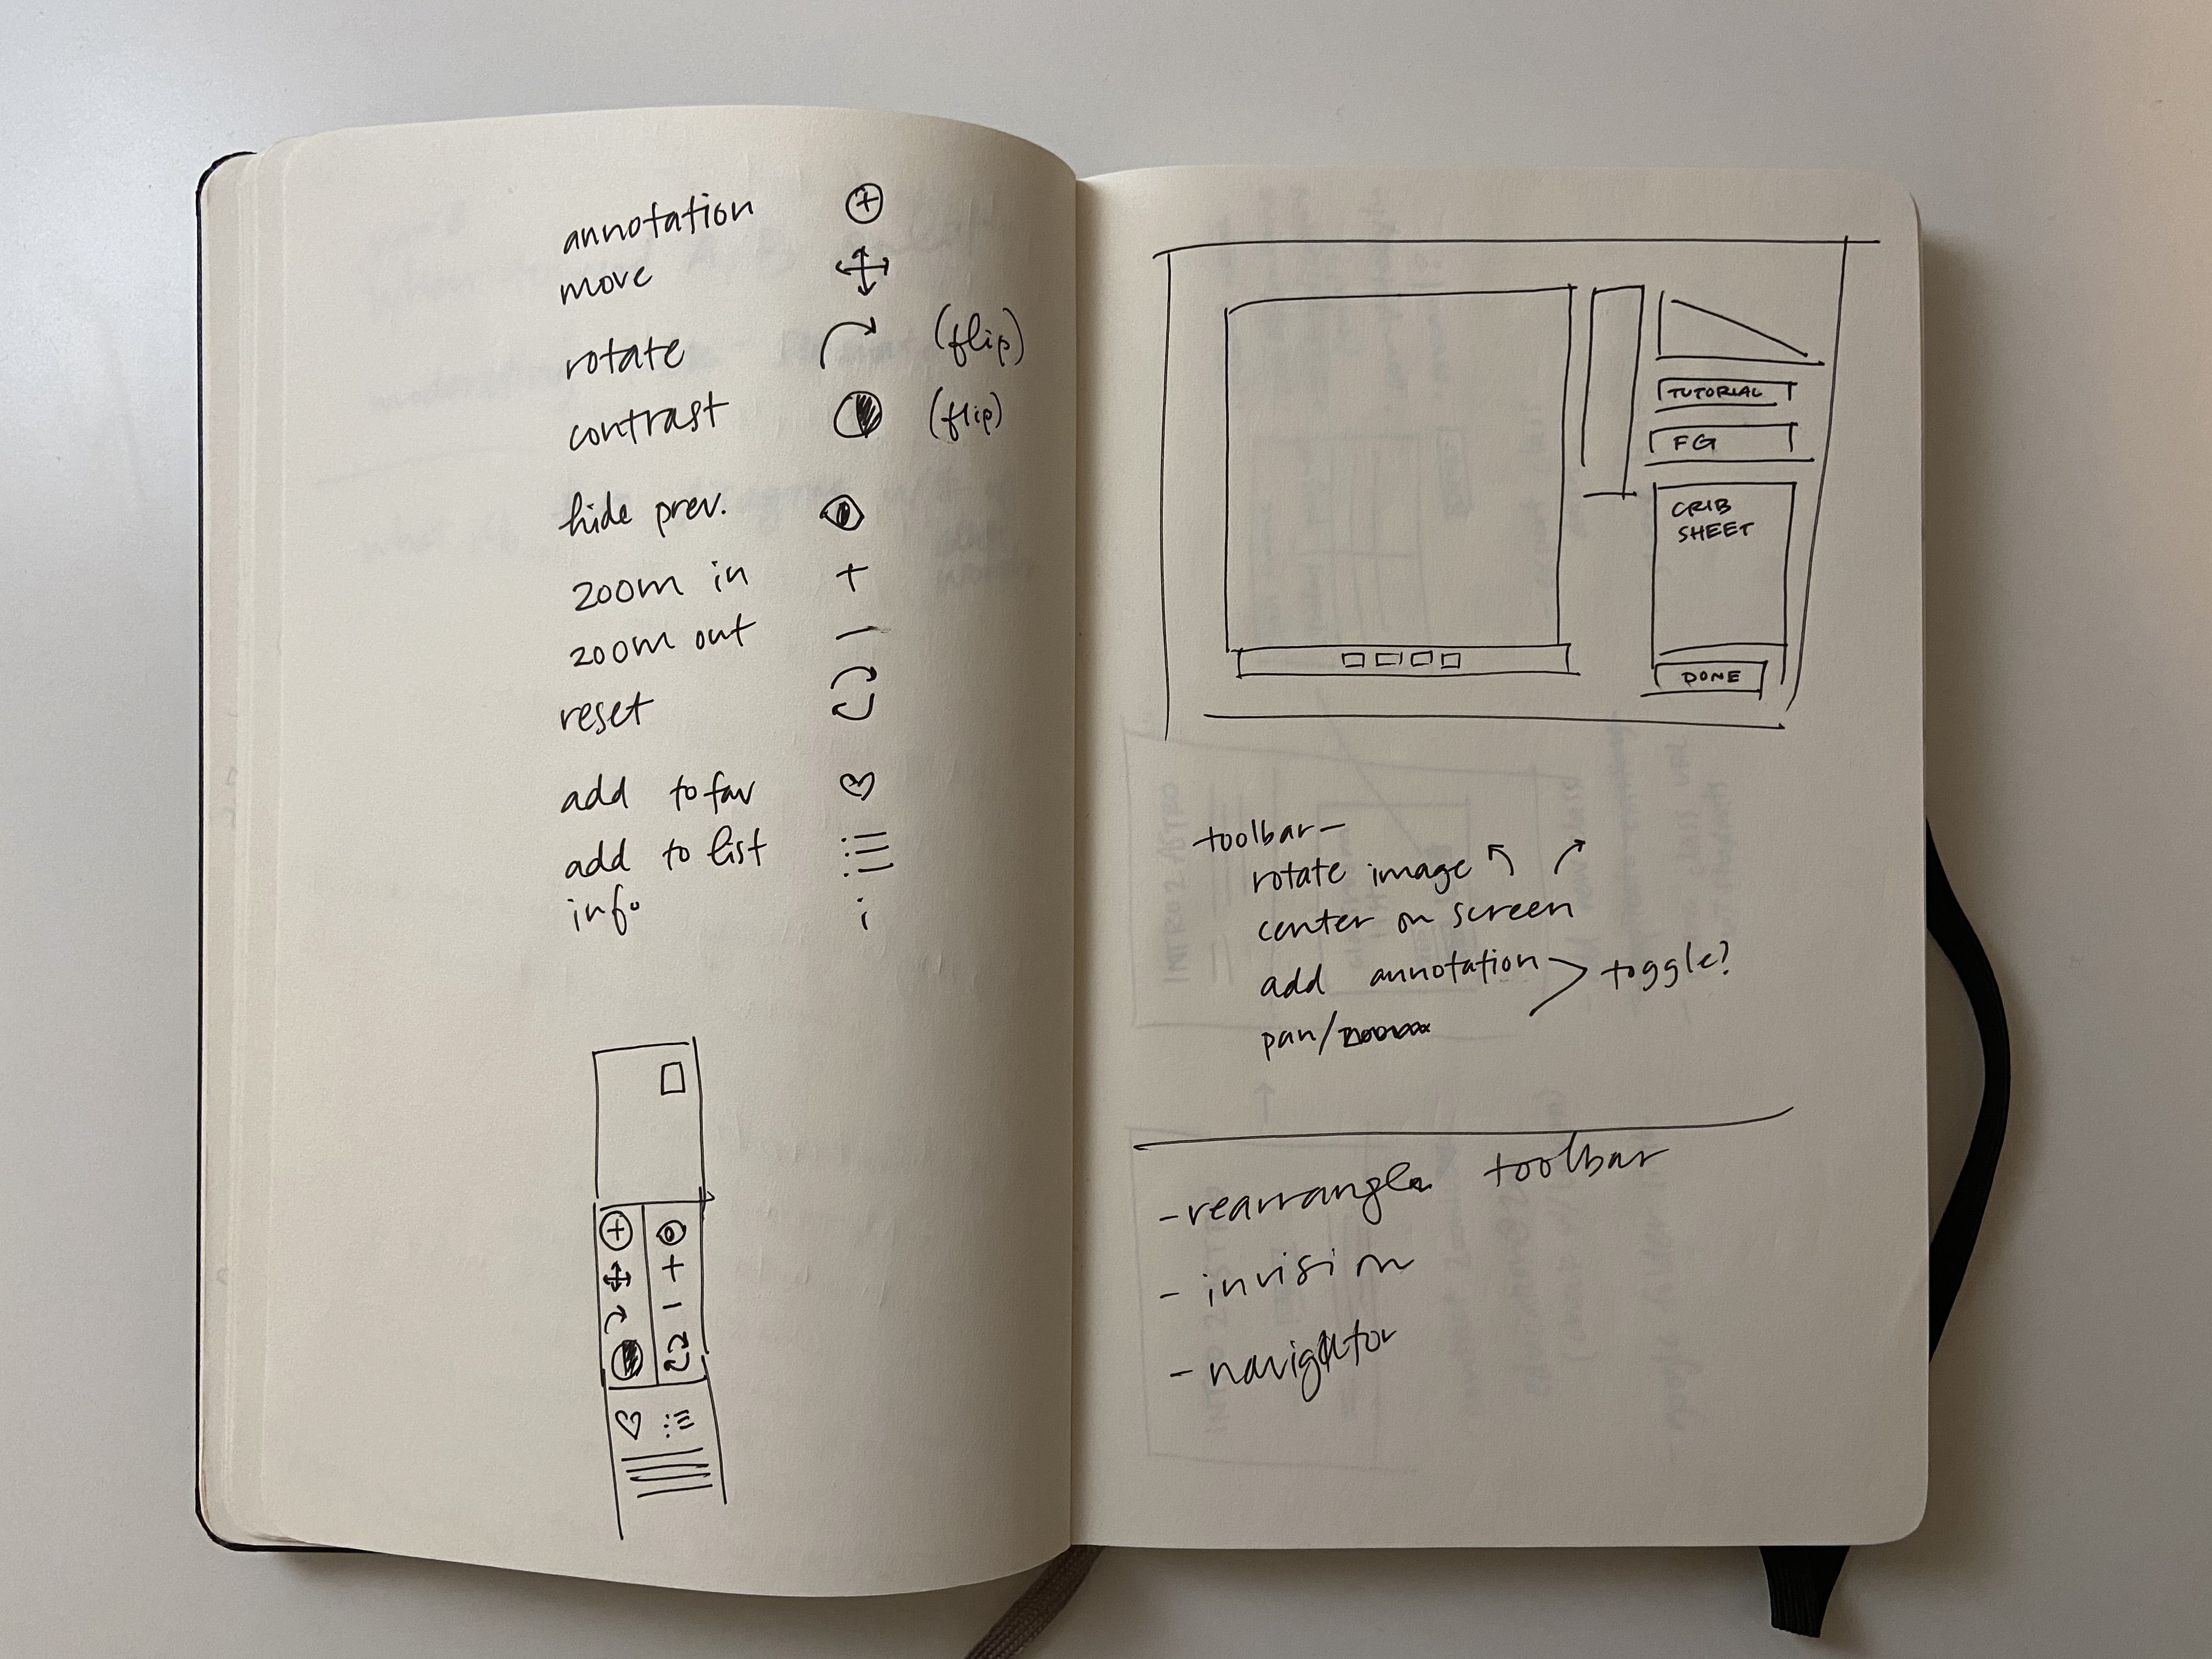 annotation
move
rotate (flip)
contrast (flip)
hide prev.
zoom in +
zoom out -
reset
add to fav
add to list
info i
TUTORIAL
FG
CRIB
SHEET
DONE
toolbar-
rotate image
center on screen
add annotation toggle?
pan/
-rearrange toolbar
- invision
- navigator